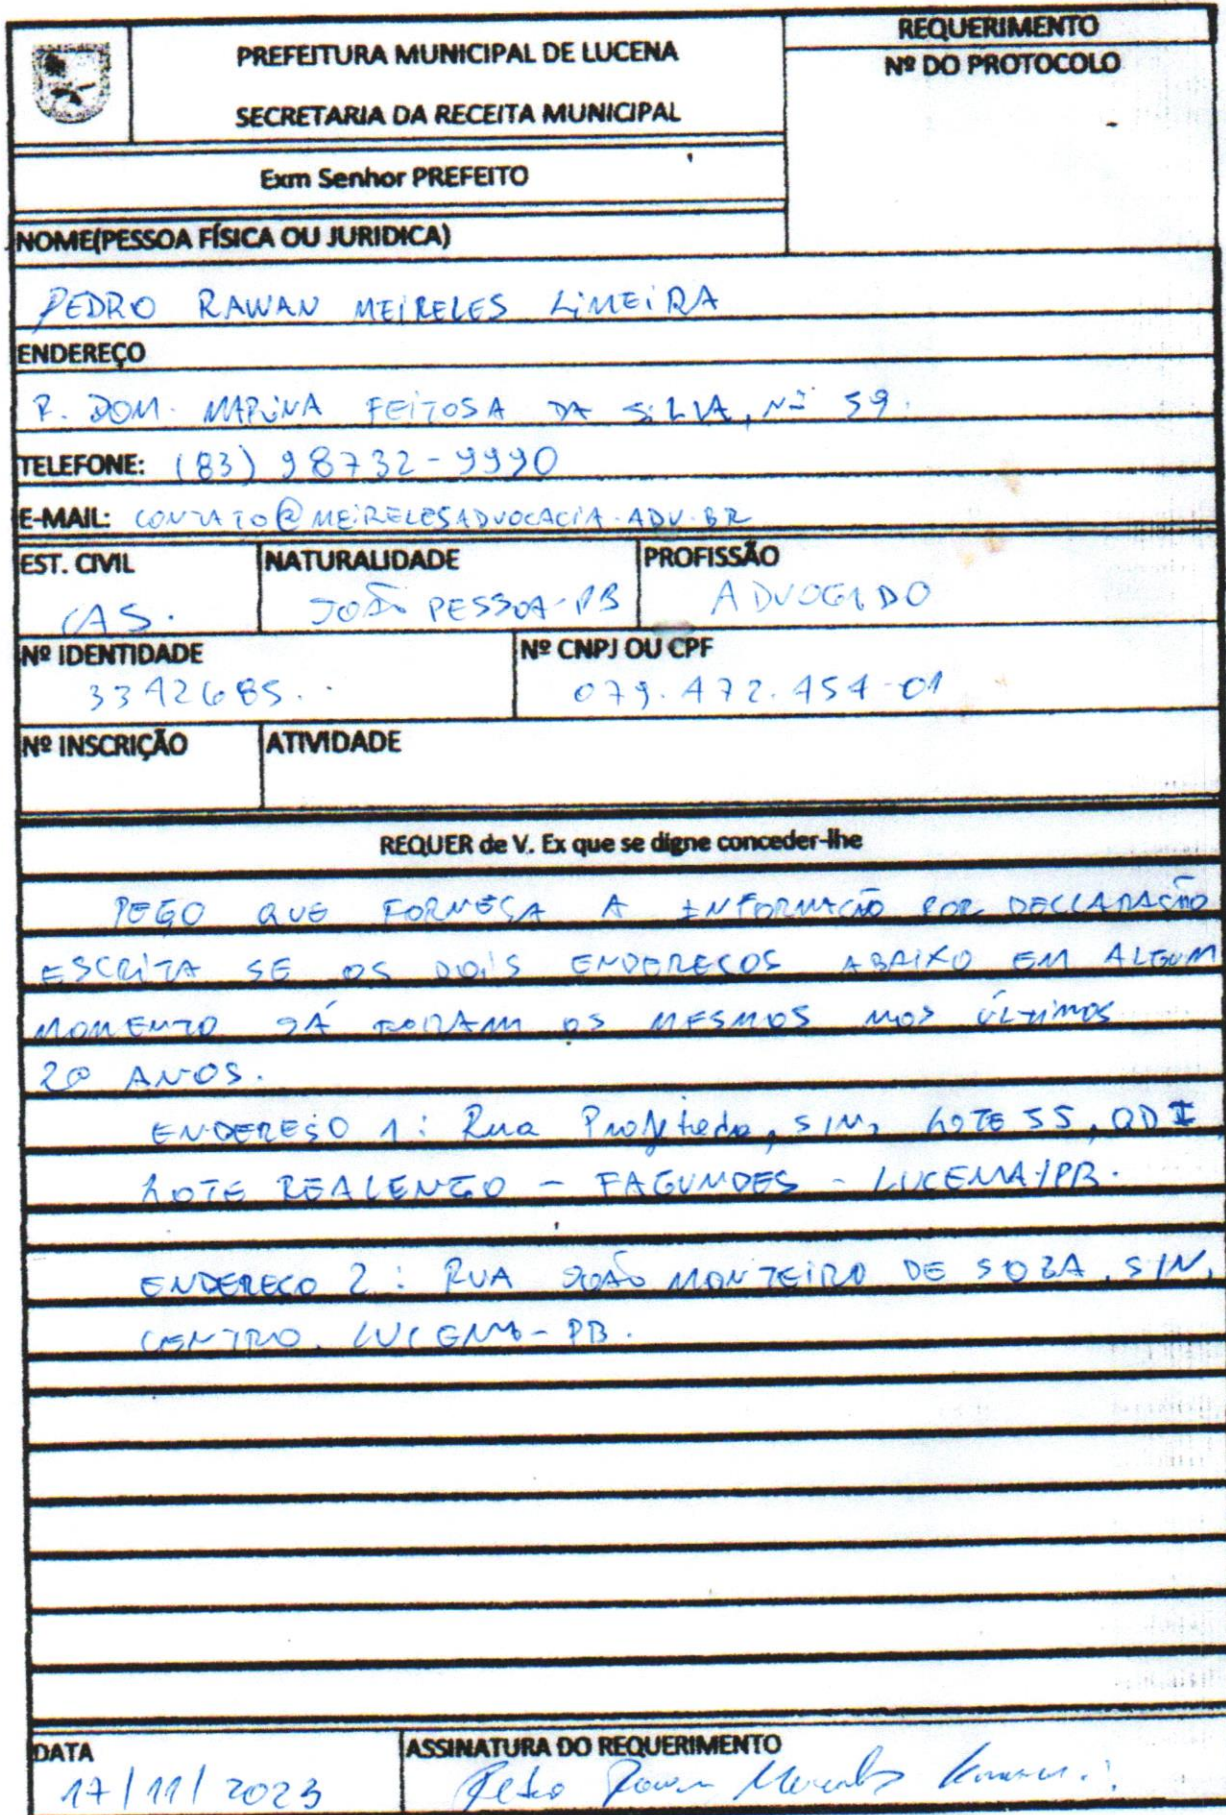 REQUERIMENTO
PREFEITURA MUNICIPAL DE LUCENA
Nº DO PROTOCOLO
SECRETARIA DA RECEITA MUNICIPAL
Exm Senhor PREFEITO
NOME(PESSOA FÍSICA OU JURIDICA)
PEDRO RAWAN MEIRELES LIMEIRA
ENDEREÇO
R. DOM. MARINA FEITOSA DA SILVA, Nº 59.
TELEFONE: (83) 98732-9990
E-MAIL: CONTATO@MEIRELESADVOCACIA.ADV.BR
EST. CIVIL NATURALIDADE PROFISSÃO
CAS. JOÃO PESSOA-PB ADVOGADO
Nº IDENTIDADE Nº CNPJ OU CPF
3342685. 079.472.454-01
Nº INSCRIÇÃO ATIVIDADE
REQUER de V. Ex que se digne conceder-lhe
PEÇO QUE FORNEÇA A INFORMAÇÃO POR DECLARAÇÃO
ESCRITA SE OS DOIS ENDEREÇOS ABAIXO EM ALGUM
MOMENTO JÁ FORAM OS MESMOS NOS ÚLTIMOS
20 ANOS.
ENDEREÇO 1: Rua Projetada, S/N, LOTE 55, QD I
LOTE REALENGO - FAGUNDES - LUCENA/PB.
ENDEREÇO 2: RUA JOÃO MONTEIRO DE SOZA, S/N,
CENTRO. LUCENA-PB.
DATA ASSINATURA DO REQUERIMENTO
17/11/2023 Pedro Rawan Meireles Limeira